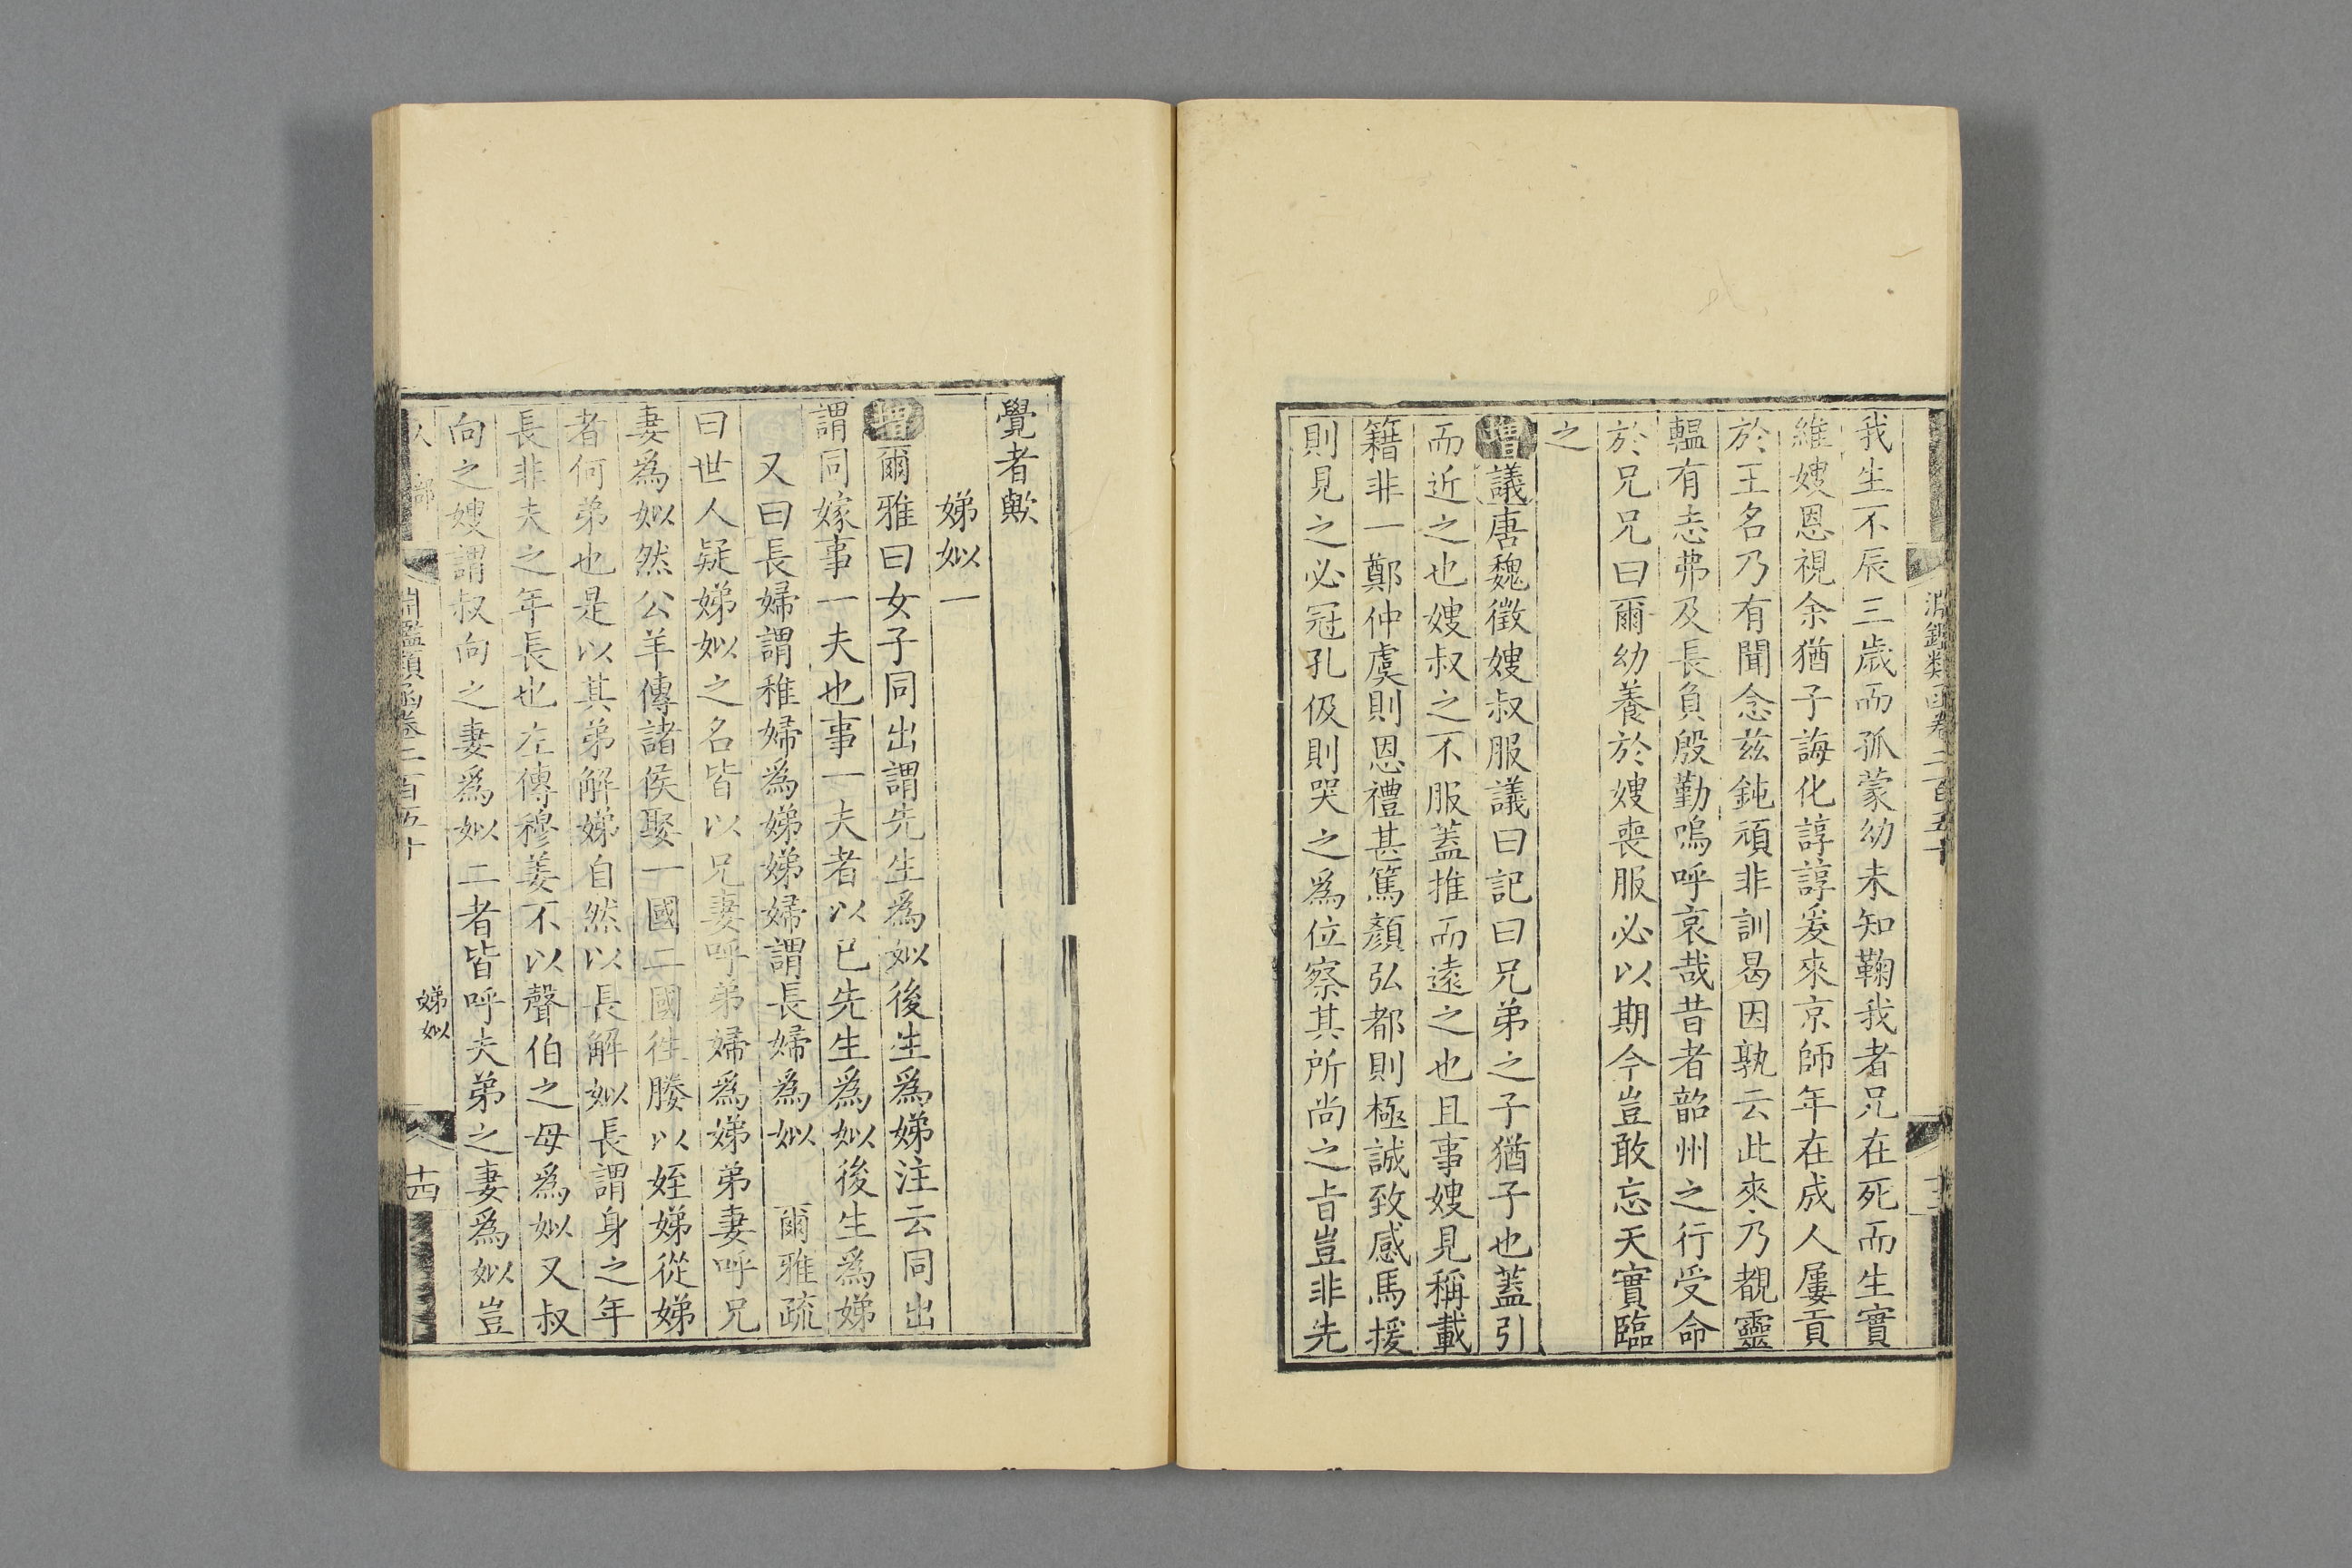 淵鑑類函卷二百五十
我生不辰三歲而孤蒙幼未知鞠我者兄在死而生實
維嫂恩視余猶子誨化諄諄爰來京師年在成人屢貢
於王名乃有聞念茲鈍頑非訓曷因孰云此來乃覩靈
輼有志弗及長負殷勤嗚呼哀哉昔者韶州之行受命
於兄兄曰爾幼養於嫂喪服必以期今豈敢忘天實臨
之
增議唐魏徵嫂叔服議曰記曰兄弟之子猶子也蓋引
而近之也嫂叔之不服蓋推而遠之也且事嫂見稱載
籍非一鄭仲虞則恩禮甚篤顏弘都則極誠致感馬援
則見之必冠孔伋則哭之爲位察其所尚之旨豈非先
覺者歟
娣姒一
增爾雅曰女子同出謂先生爲姒後生爲娣注云同出
謂同嫁事一夫也事一夫者以已先生爲姒後生爲娣
又曰長婦謂稚婦爲娣娣婦謂長婦爲姒 爾雅疏
曰世人疑娣姒之名皆以兄妻呼弟婦爲娣弟妻呼兄
妻爲姒然公羊傳諸侯娶一國二國徃媵以姪娣從娣
者何弟也是以其弟解娣自然以長解姒長謂身之年
長非夫之年長也左傳穆姜不以聲伯之母爲姒又叔
向之嫂謂叔向之妻爲姒二者皆呼夫弟之妻爲姒豈
人部 淵鑑類函卷二百五十 娣姒 十四